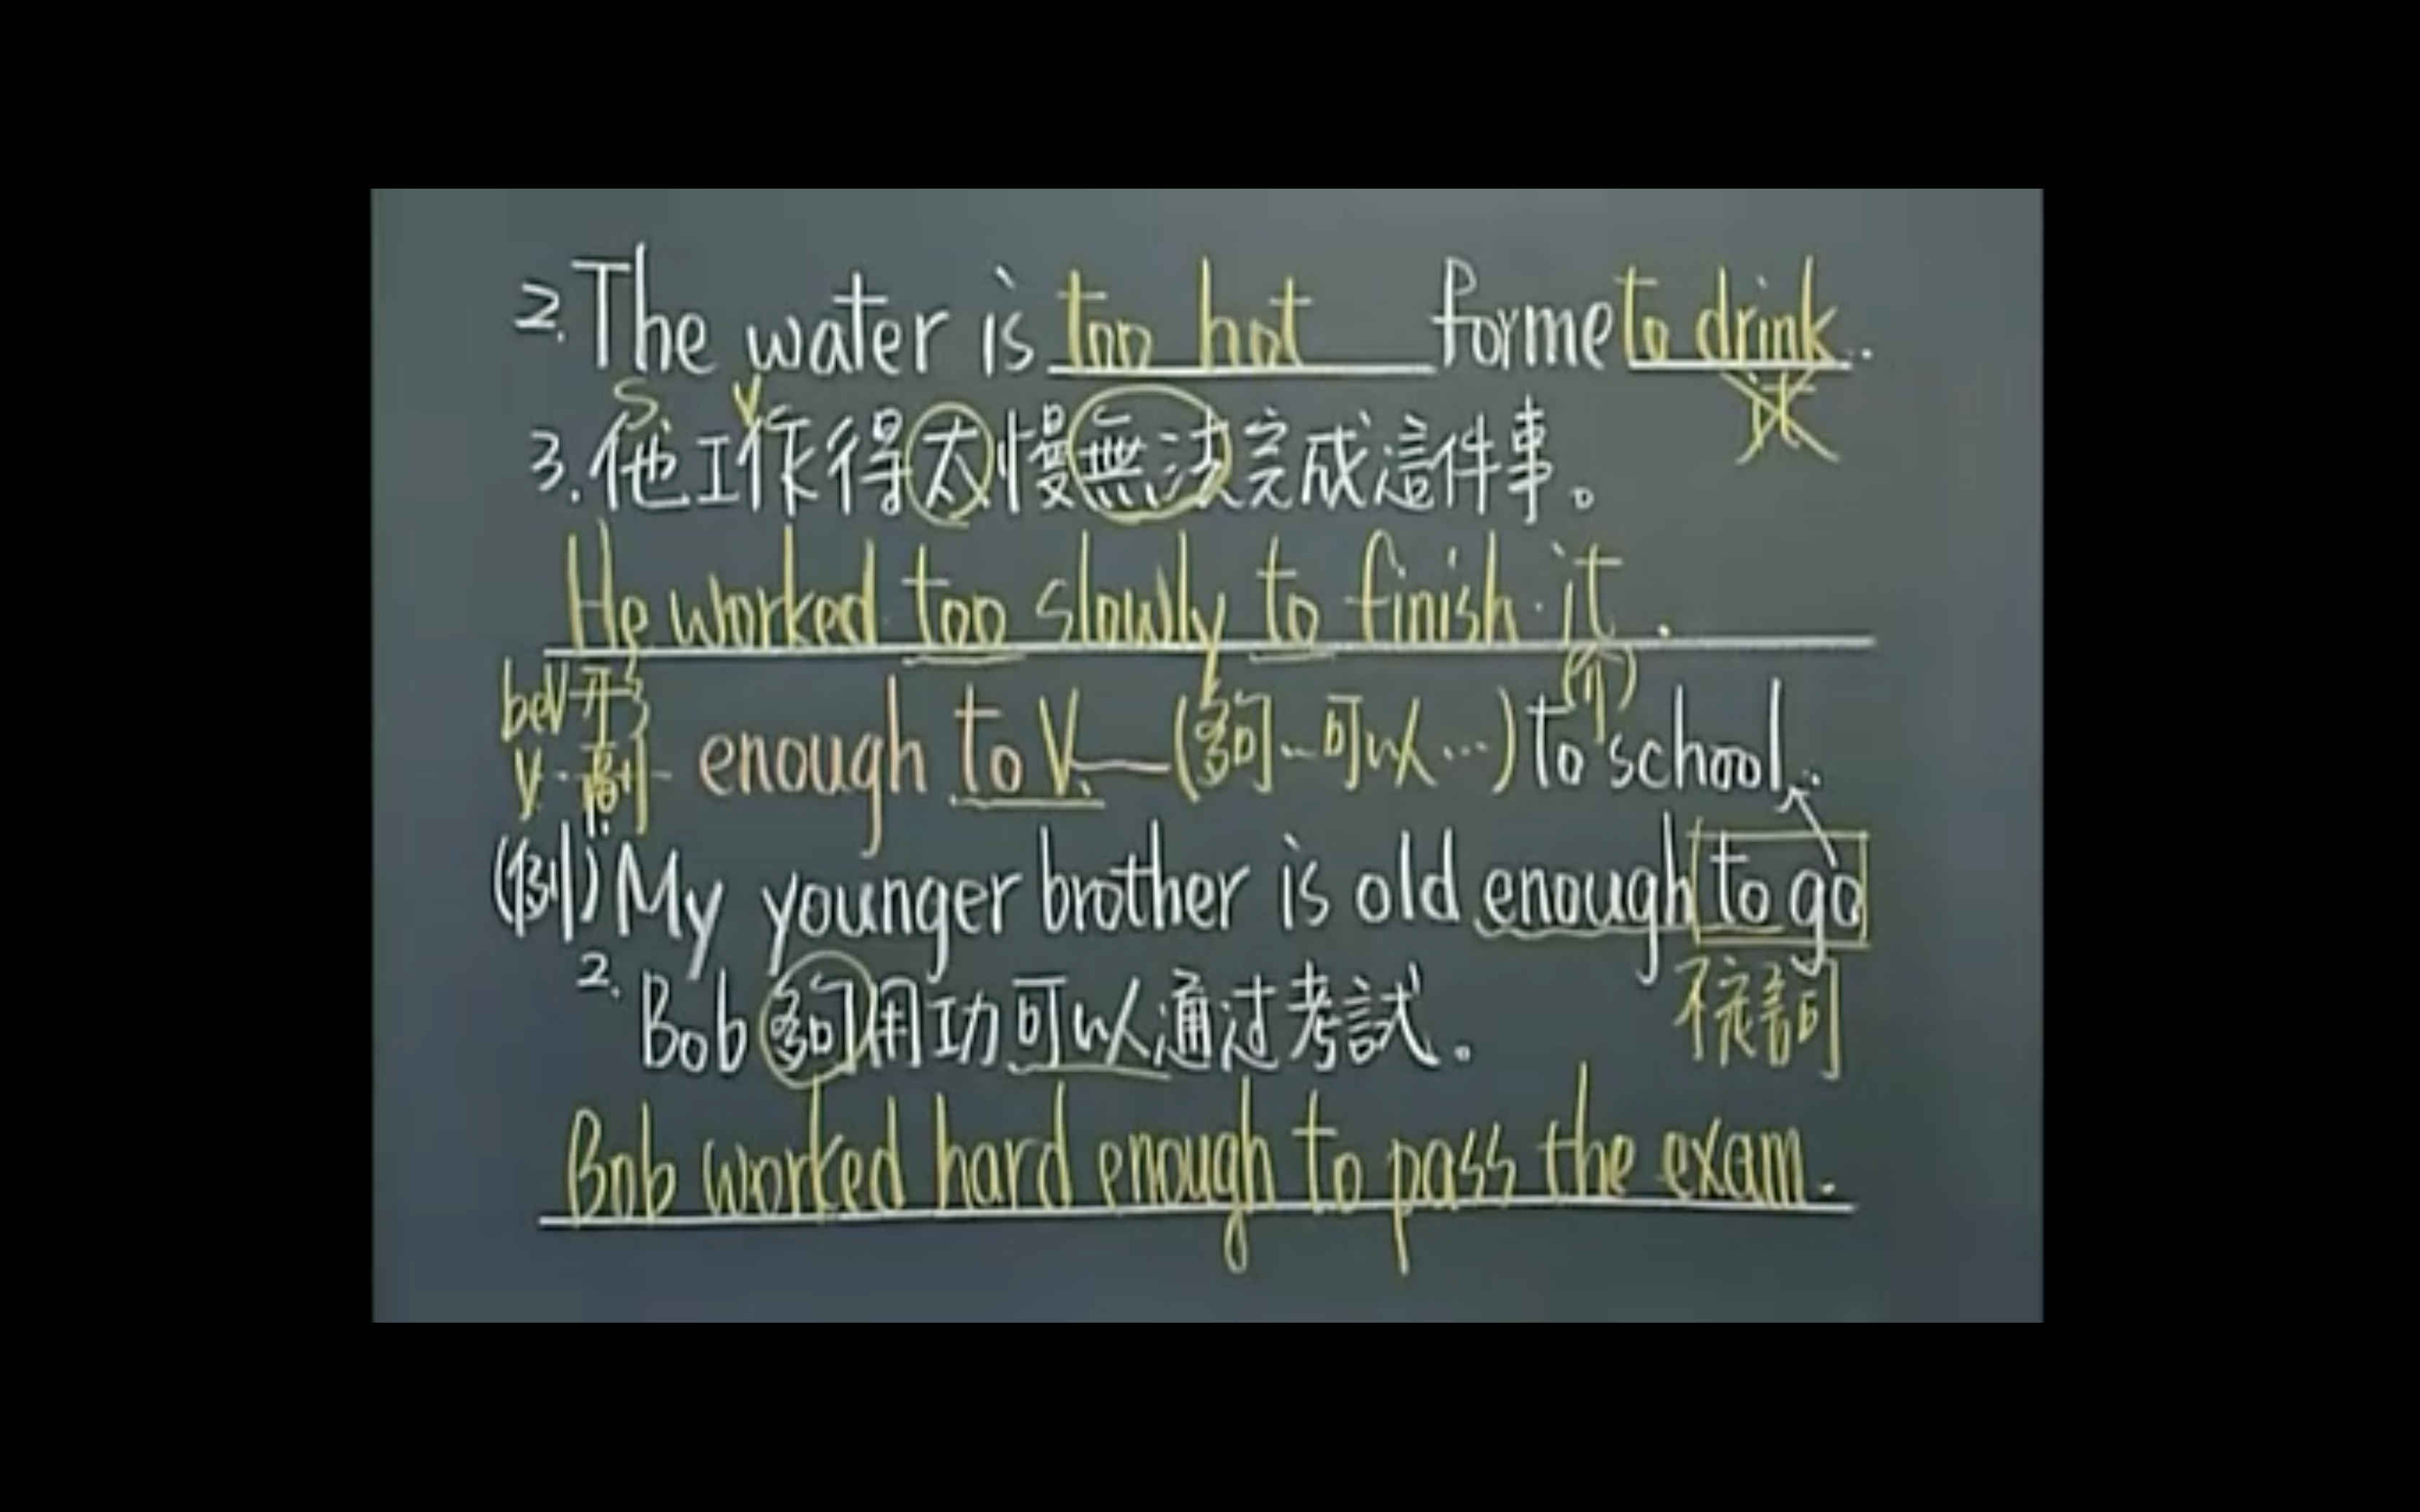 2. The water is too hot for me to drink.
it
S V
3. 他工作得太慢無法完成這件事。
He worked too slowly to finish it.
beV 形 (介)
V. 副 enough to V. (夠…可以…) to school.
(例) 1. My younger brother is old enough to go
不定詞
2. Bob 夠用功可以通过考試。
Bob worked hard enough to pass the exam.